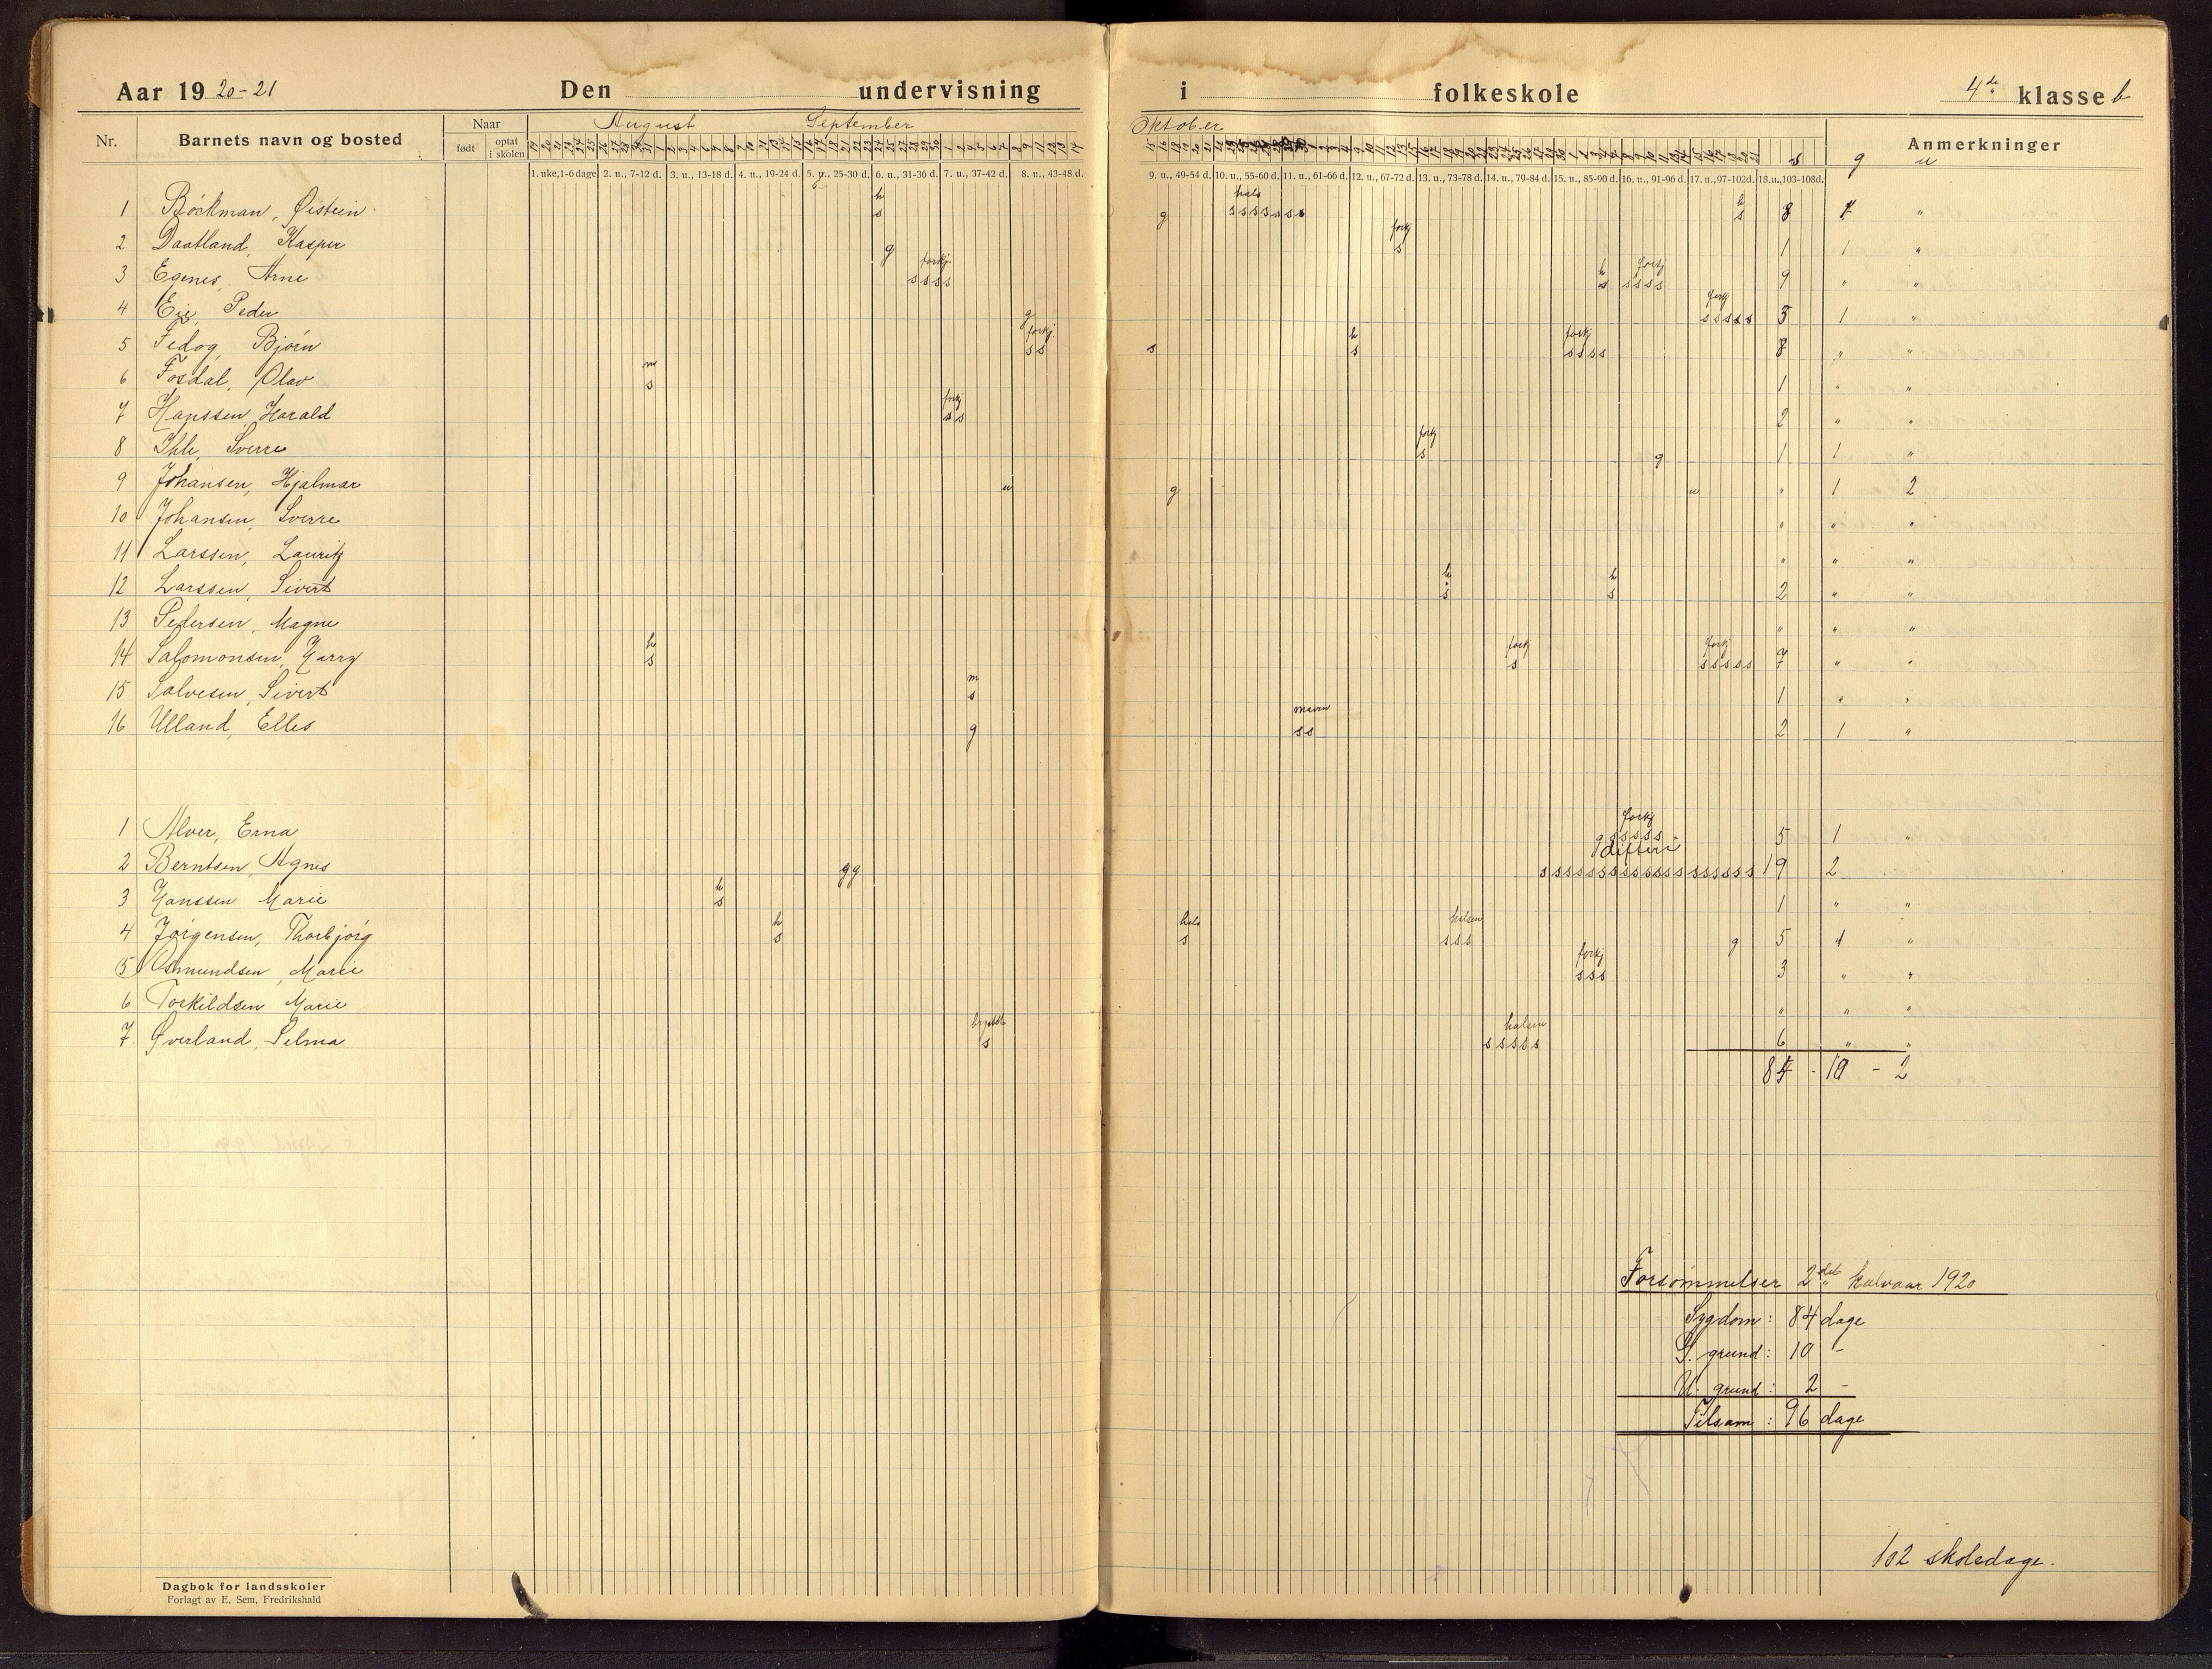 Aar 19 20-21 Den undervisning i folkeskole 4de klasse b
Nr. Barnets navn og bosted Naar født optat i skolen August September Oktober s g u Anmerkninger
1. uke, 1-6 dage 2. u., 7-12 d. 3. u., 13-18 d. 4. u., 19-24 d. 5. u., 25-30 d. 6. u., 31-36 d. 7. u., 37-42 d. 8. u., 43-48 d. 9. u., 49-54 d. 10. u., 55-60 d. 11. u., 61-66 d. 12. u., 67-72 d. 13. u., 73-78 d. 14. u., 79-84 d. 15. u., 85-90 d. 16. u., 91-96 d. 17. u., 97-102 d. 18. u., 103-108 d.
h hals h
1 Bøckman, Øistein s g s s s s s s s s 8 1 "
forkj
2 Daatland, Kasper g s 1 1 "
forkj. h forkj
3 Egenes, Arne s s s s s s s s s 9 " "
forkj
4 Eie, Peder g s s s s s 5 1 "
forkj. h forkj
5 Fedog, Bjørn s s s s s s s s 8 " "
m
6 Fosdal, Olav s 1 " "
forkj
7 Hanssen, Harald s s 2 " "
forkj
8 Ihle, Sverre s g 1 1 "
9 Johansen, Hjalmar u g u " 1 2
10 Johansen, Sverre " " "
11 Larssen, Lauritz " " "
h h
12 Larssen, Sivert s s 2 " "
13 Pedersen, Magne " " "
h forkj forkj
14 Salomonsen, Harry s s s s s s s 7 " "
m
15 Salvesen, Sivert s 1 " "
maven
16 Ulland, Elles g s s 2 1 "
forkj
1 Alver, Erna g s s s s s 5 1 "
difteri
2 Berntsen, Agnes g g s s s s s s s s s s s s s s s s s s s 19 2
h
3 Hanssen Marie s 1 " "
h hals halsen
4 Jørgensen, Thorbjørg s s s s s g 5 1 "
forkj
5 Osmundsen, Marie s s s 3 " "
6 Torkildsen Marie " " "
brystet halsen
7. Øverland, Selma s s s s s s 6 " "
84 - 10 - 2
Forsømmelser 2det halvaar 1920
Sygdom: 84 dage
G. grund: 10 -
U. grund: 2 -
Tilsam: 96 dage
102 skoledage.
Dagbok for landsskoler
Forlagt av E. Sem, Fredrikshald